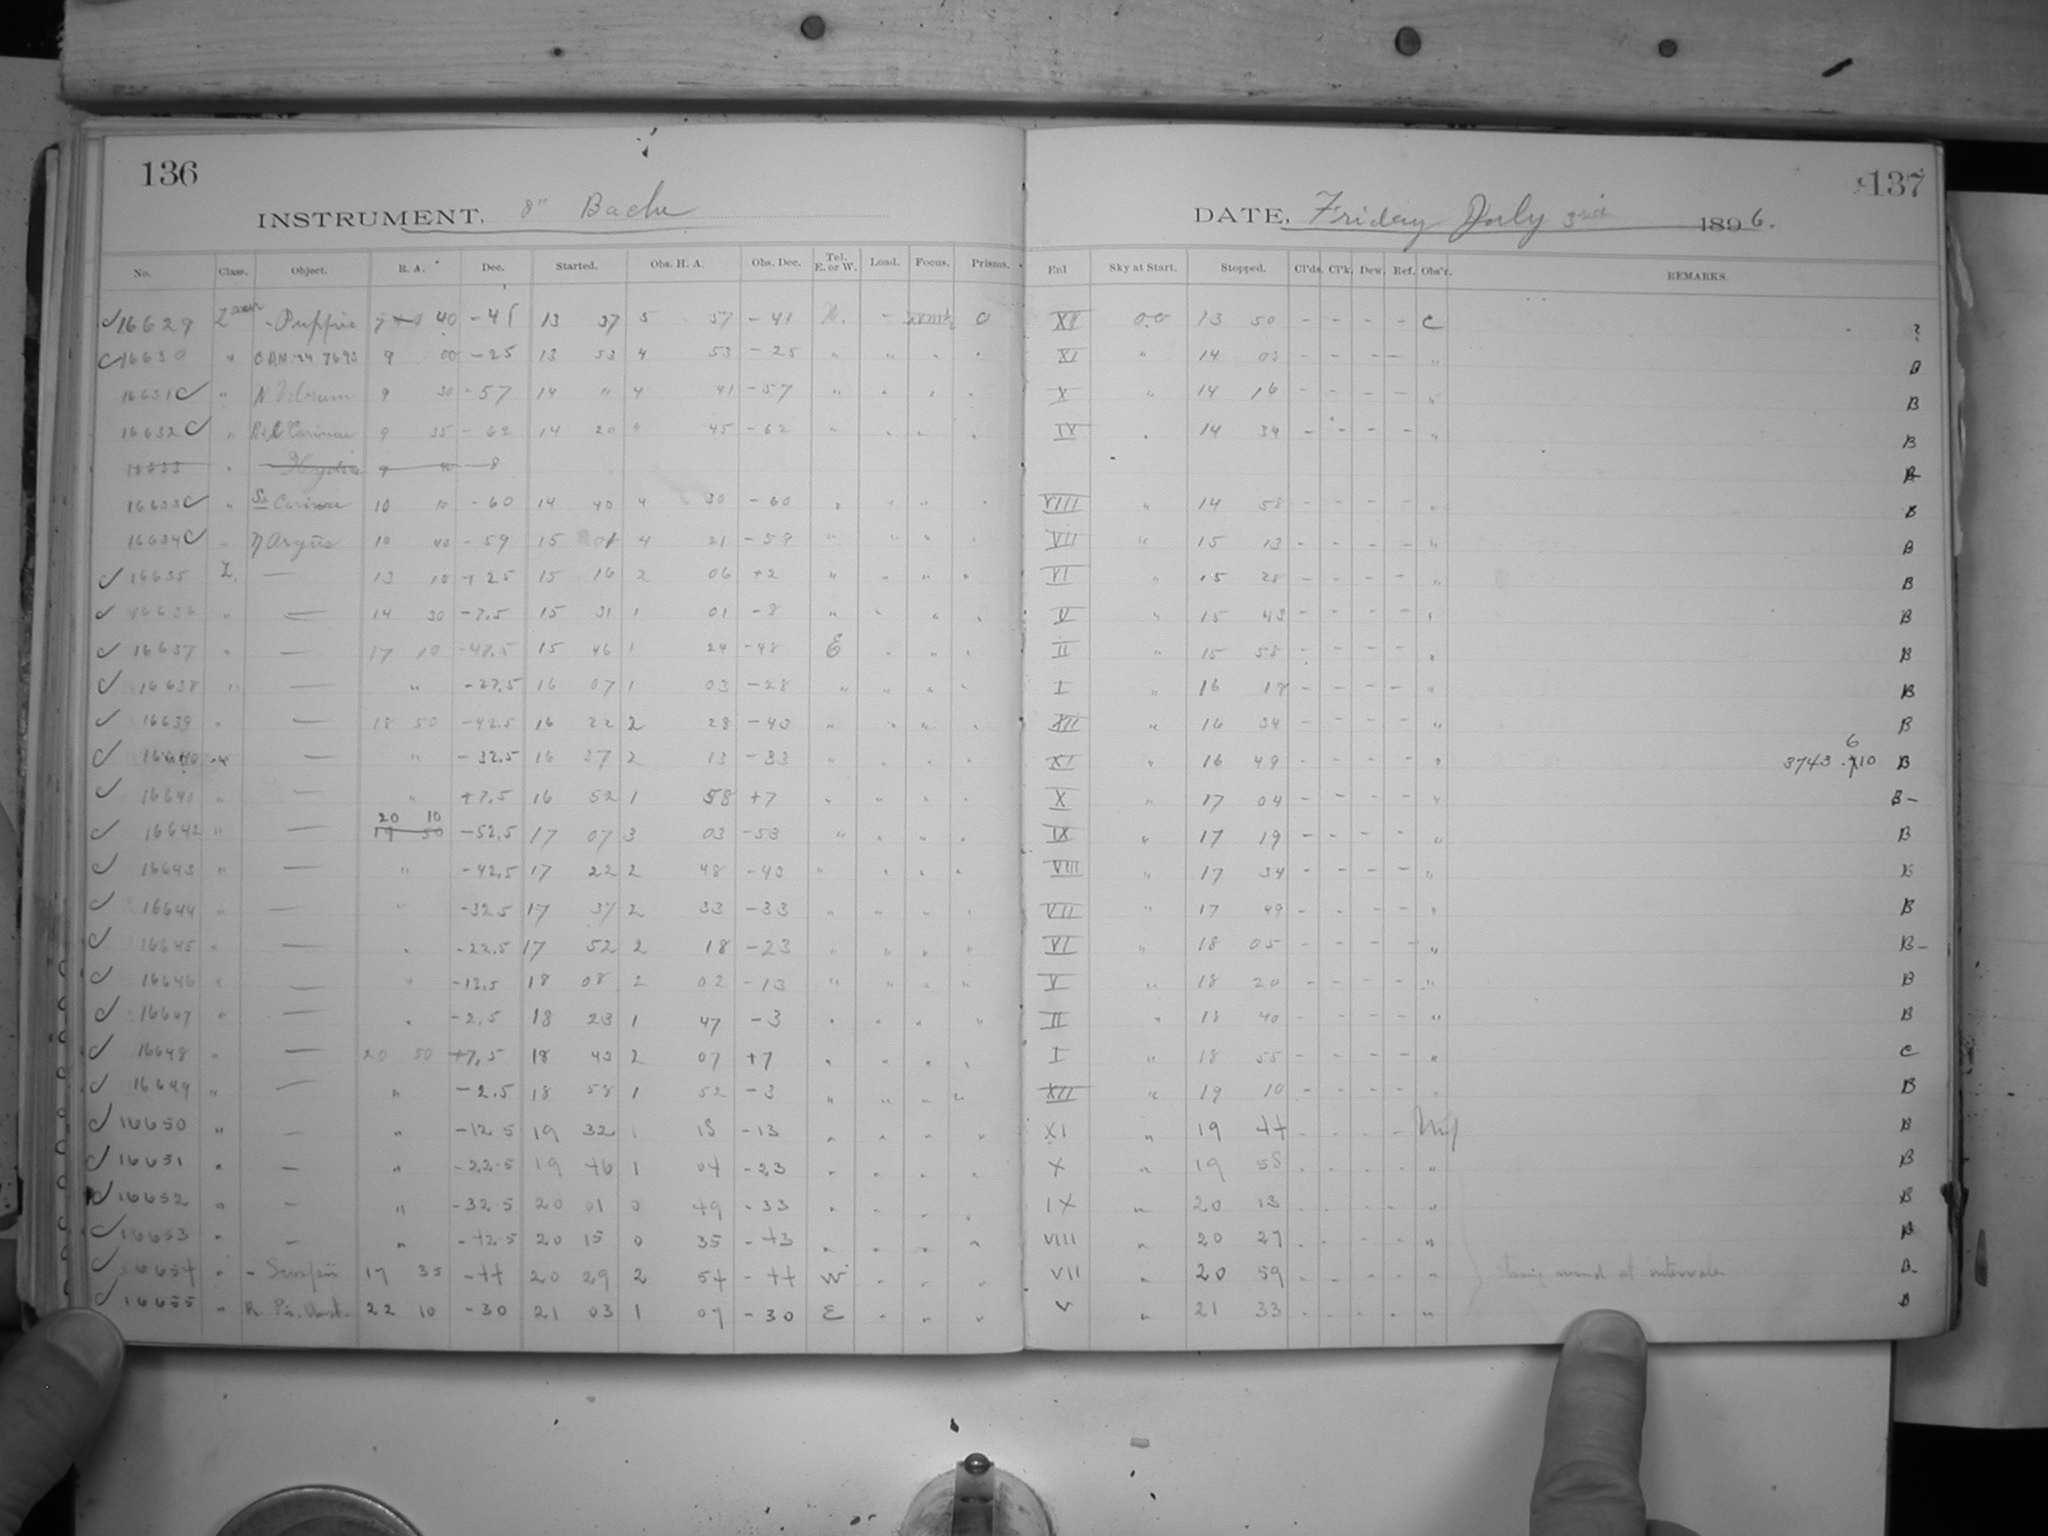 136
137
INSTRUMENT. 8" Bache
DATE. Friday July 3rd 1896.
No. Class. Object. R. A. Dec. Started. Obs. H. A. Obs. Dec. Tel. E. or W. Load. Focus. Prisms. Enl Sky at Start. Stopped. Cl'ds. Cl'k. Dew. Ref. Obs'r. REMARKS.
16629 - Puppis 40 -41 13 37 5 57 -41 W. - O XII 0.0 13 50 - - - - C ?
16630 " 9 00 -25 13 53 4 53 -25 " " " " XI " 14 05 - - - - " B
16631 " N Velorum 9 30 -57 14 " 4 41 -57 " " " " X " 14 16 - - - - " B
16632 " R & l Carinae 9 35 -62 14 20 " 45 -62 " " " " IX " 14 34 - - - - " B
16633 " Hydrae 9 40 -8 B
16633 " S Carinae 10 10 -60 14 40 4 30 -60 " " " " VIII " 14 58 - - - - " B
16634 " η Argûs 10 40 -59 15 01 4 21 -59 " " " " VII " 15 13 - - - - " B
16635 Z. — 13 10 +25 15 16 2 06 +2 " " " " VI " 15 28 - - - - " B
16636 " — 14 30 -7.5 15 31 1 01 -8 " " " " V " 15 43 - - - - " B
16637 " — 17 10 -47.5 15 46 1 24 -48 E " " " II " 15 58 - - - - " B
16638 " — " -27.5 16 07 1 03 -28 " " " " I " 16 19 - - - - " B
16639 " — 18 50 -42.5 16 22 2 28 -43 " " " " XII " 16 34 - - - - " B
16640 " — " -32.5 16 37 2 13 -33 " " " " XI " 16 49 - - - - " 3743 .710 6 B
16641 " — " +7.5 16 52 1 58 +7 " " " " X " 17 04 - - - - " B-
20 10
16642 " — 19 50 -52.5 17 07 3 03 -53 " " " " IX " 17 19 - - - - " B
16643 " — " -42.5 17 22 2 48 -43 " " " " VIII " 17 34 - - - - " B
16644 " — " -32.5 17 37 2 33 -33 " " " " VII " 17 49 - - - - " B
16645 " — " -22.5 17 52 2 18 -23 " " " " VI " 18 05 - - - - " B-
16646 " — " -12.5 18 08 2 02 -13 " " " " V " 18 20 - - - - " B
16647 " — " -2.5 18 23 1 47 -3 " " " " II " 18 40 - - - - " B
16648 " — 20 50 +7.5 18 43 2 07 +7 " " " " I " 18 55 - - - - " C
16649 " — " -2.5 18 58 1 52 -3 " " " " XII " 19 10 - - - - " B
16650 " — " -12.5 19 32 1 18 -13 " " " " XI " 19 44 - - - - B
16651 " — " -22.5 19 46 1 04 -23 " " " " X " 19 58 - - - - " B
16652 " — " -32.5 20 01 0 49 -33 " " " " IX " 20 13 - - - - " B
16653 " — " -42.5 20 15 0 35 -43 " " " " VIII " 20 27 - - - - " B
16654 " - Scorpii 17 35 -44 20 29 2 54 -44 W " " " VII " 20 59 - - - - " Strong wind at intervals B-
16655 " R. Pis. Aust. 22 10 -30 21 03 1 07 -30 E " " " V " 21 33 - - - - " B